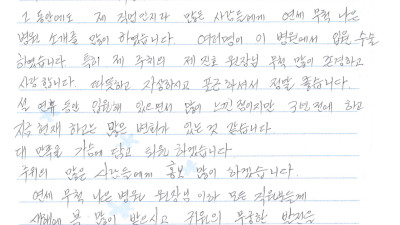 그 동안에도 제 지인인지라 많은 사람들에게 연세 무척 나은
병원 소개를 많이 하였습니다. 여러명이 이 병원에서 입원 수술
하였습니다 특히 제 주치의 제진호 원장님 무척 많이 존경하고
사랑 합니다. 따뜻하고 자상하시고 포근 하셔서 정말 좋습니다.
설 연휴 동안 입원해 있으면서 많이 느낀 점이지만 3년 전에 하고
지금 현재 하고는 많은 변화가 있는 것 같습니다
대 만족을 가슴에 담고 퇴원 하겠습니다.
주위의 많은 사람들에게 홍보 많이 하겠습니다.
연세 무척 나은 병원 원장님 이하 모든 직원분들께
새해에 복 많이 받으시고 귀원의 무궁한 발전을